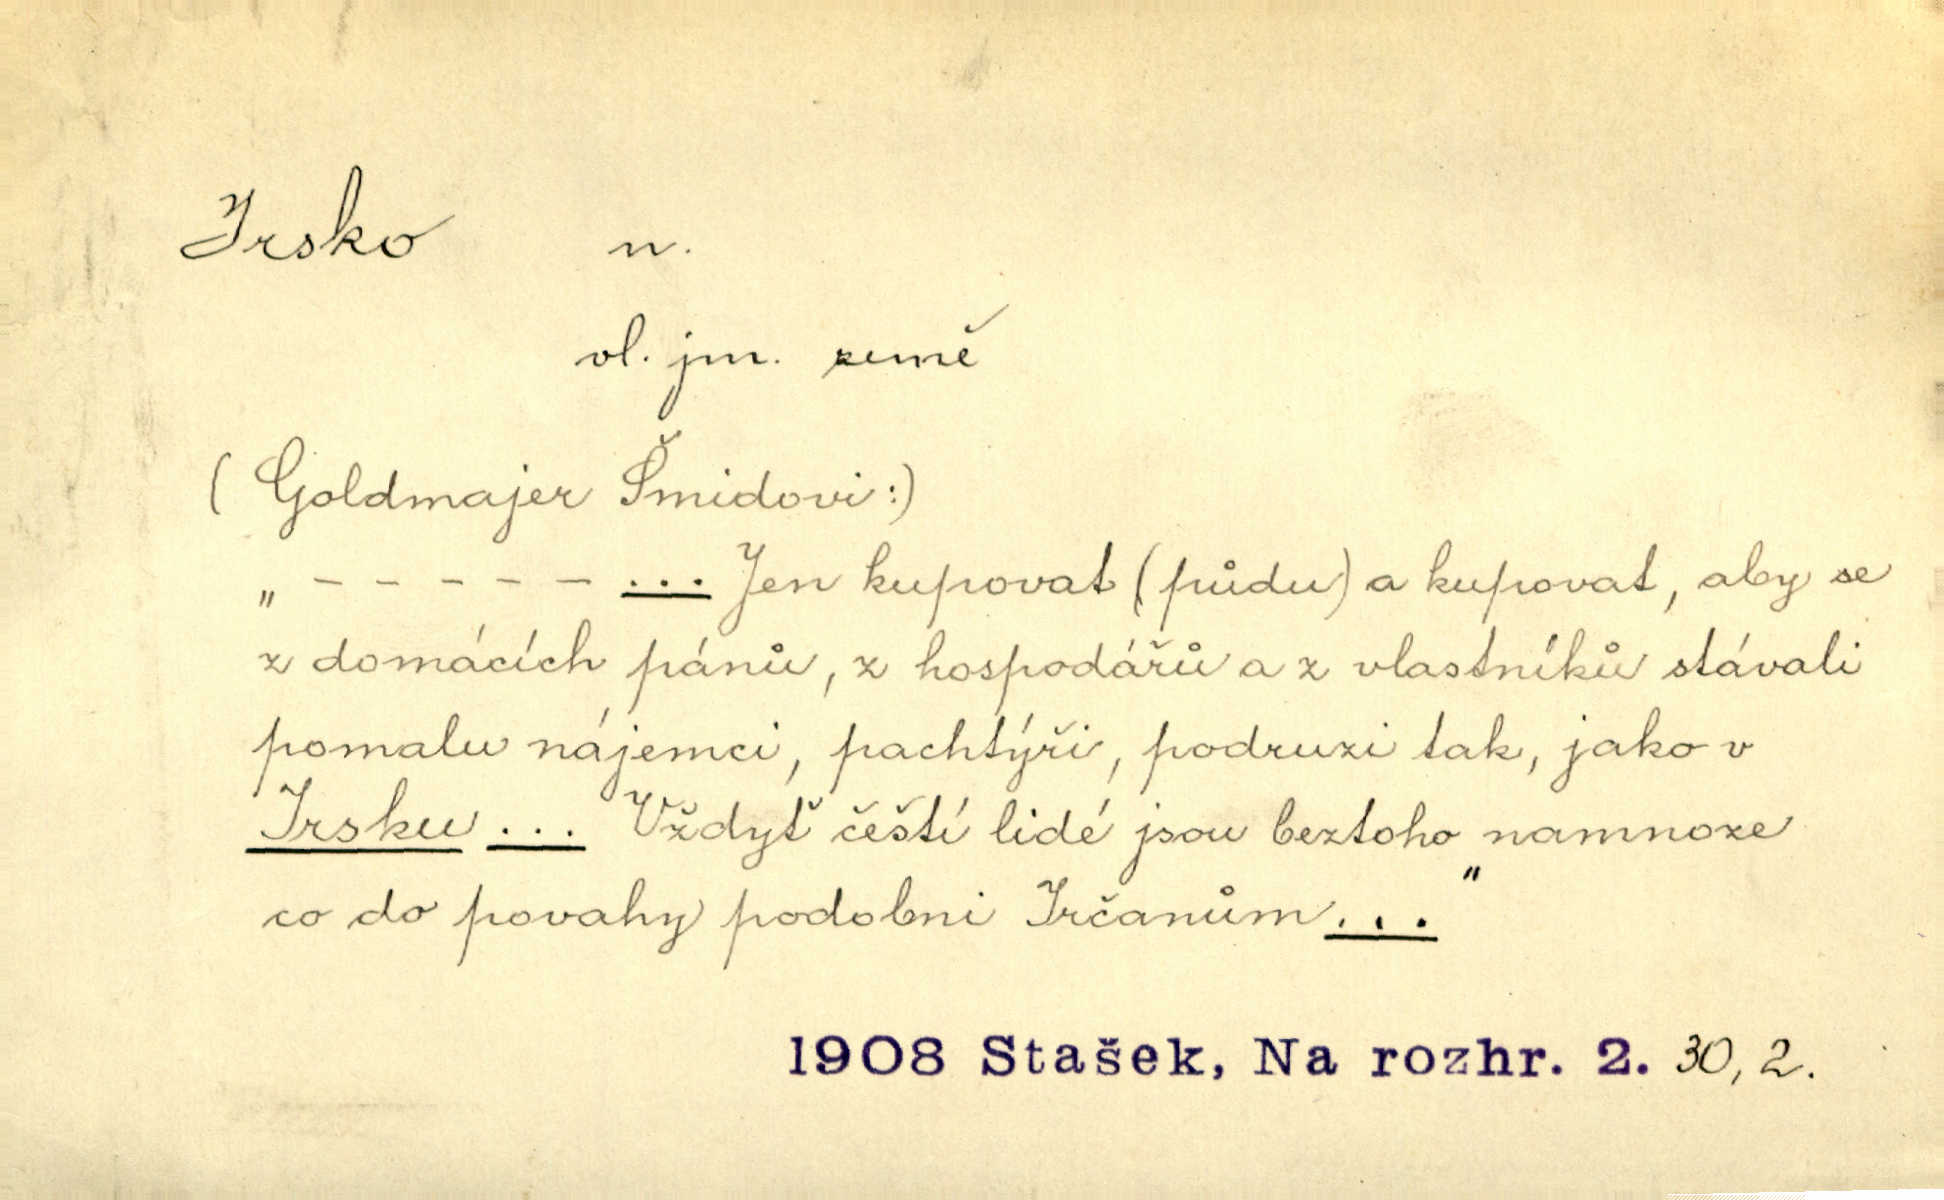 Irsko n.
vl. jm. země
(Goldmajer Šmidovi:)
„ – – – – – ... Jen kupovat (půdu) a kupovat, aby se
z domácích pánů, z hospodářů a z vlastníků stávali
pomalu nájemci, pachtýři, podruzi tak, jako v
Irsku ... Vždyť čeští lidé jsou beztoho namnoze
co do povahy podobni Irčanům ..."
1908 Stašek, Na rozhr. 2. 30, 2.